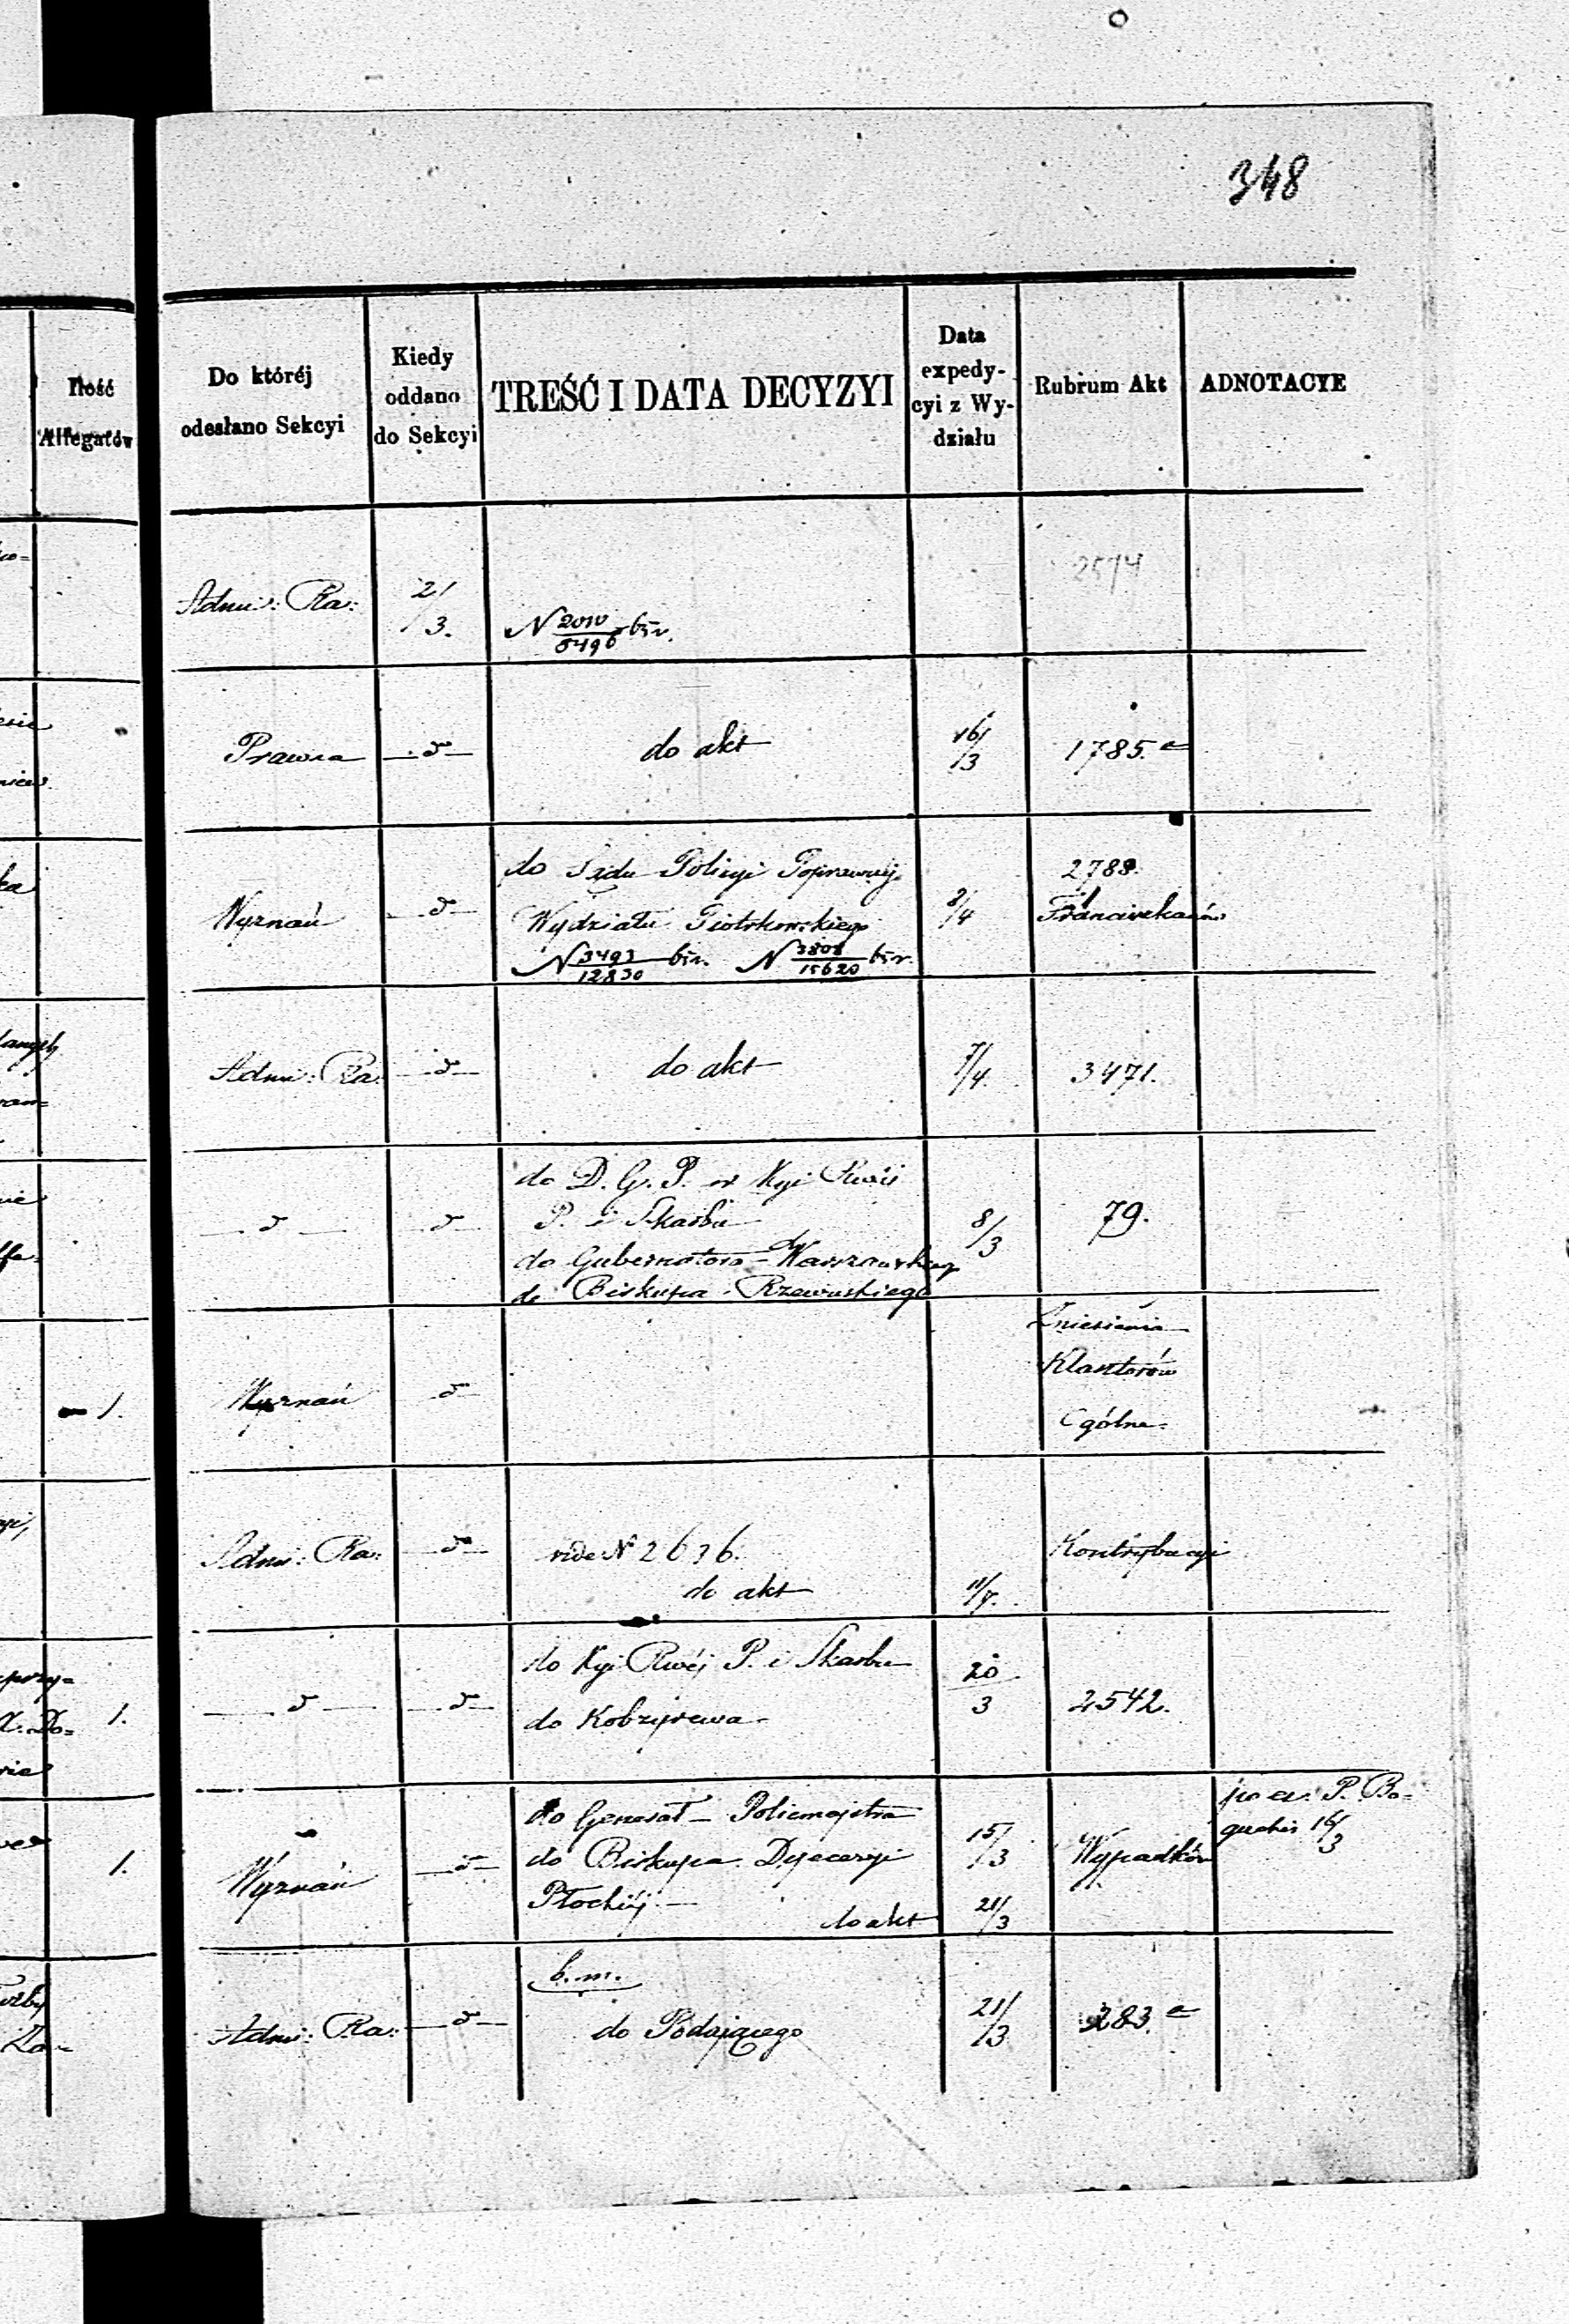 348
Ilość
Allegatów
Do któréj
odesłano Sekcyi
Kiedy
oddano
do Sekcyi
TREŚĆ I DATA DECYZYI
Data
expedy-
cyi z Wy-
działu
Rubrum Akt
ADNOTACYE
2574
Admi: Ra:
21/3.
N 2010/8496 b.r.
Prawna
d°
do akt
16/3
1785.a
Wyznań
d°
do Sądu Policyi Poprawczej
Wydziału Piotrkowskiego
N 3493/12830 b.r. N 3808/15620 b.r.
8/4
2788.
Franciszkanów
Admi: Ra:
d°
do akt
7/4.
3471.
d°
d°
do D. G. P. w Kyi Rwéi
P. i Skarbu
do Gubernatora Warszawskiego
do Biskupa Rzewuskiego
8/3
79.
1.
Wyznań
d°
Zniesienia
Klasztorów
Ogólne.
Admi: Ra:
d°
vide N 2636.
do akt
11/4.
Kontrybucyi
1.
d°
d°
do Kyi Rwéj P. i Skarbu
do Kobzyrewa
20/3
2542.
1.
Wyznań
d°
do Generał-Policmajstra
do Biskupa Dyecezyi
Płockiéj
do akt
15/3
21/3
Wypadków
16/3
Admi: Ra:
d°
b.m.
do Podającego
21/3
383.a